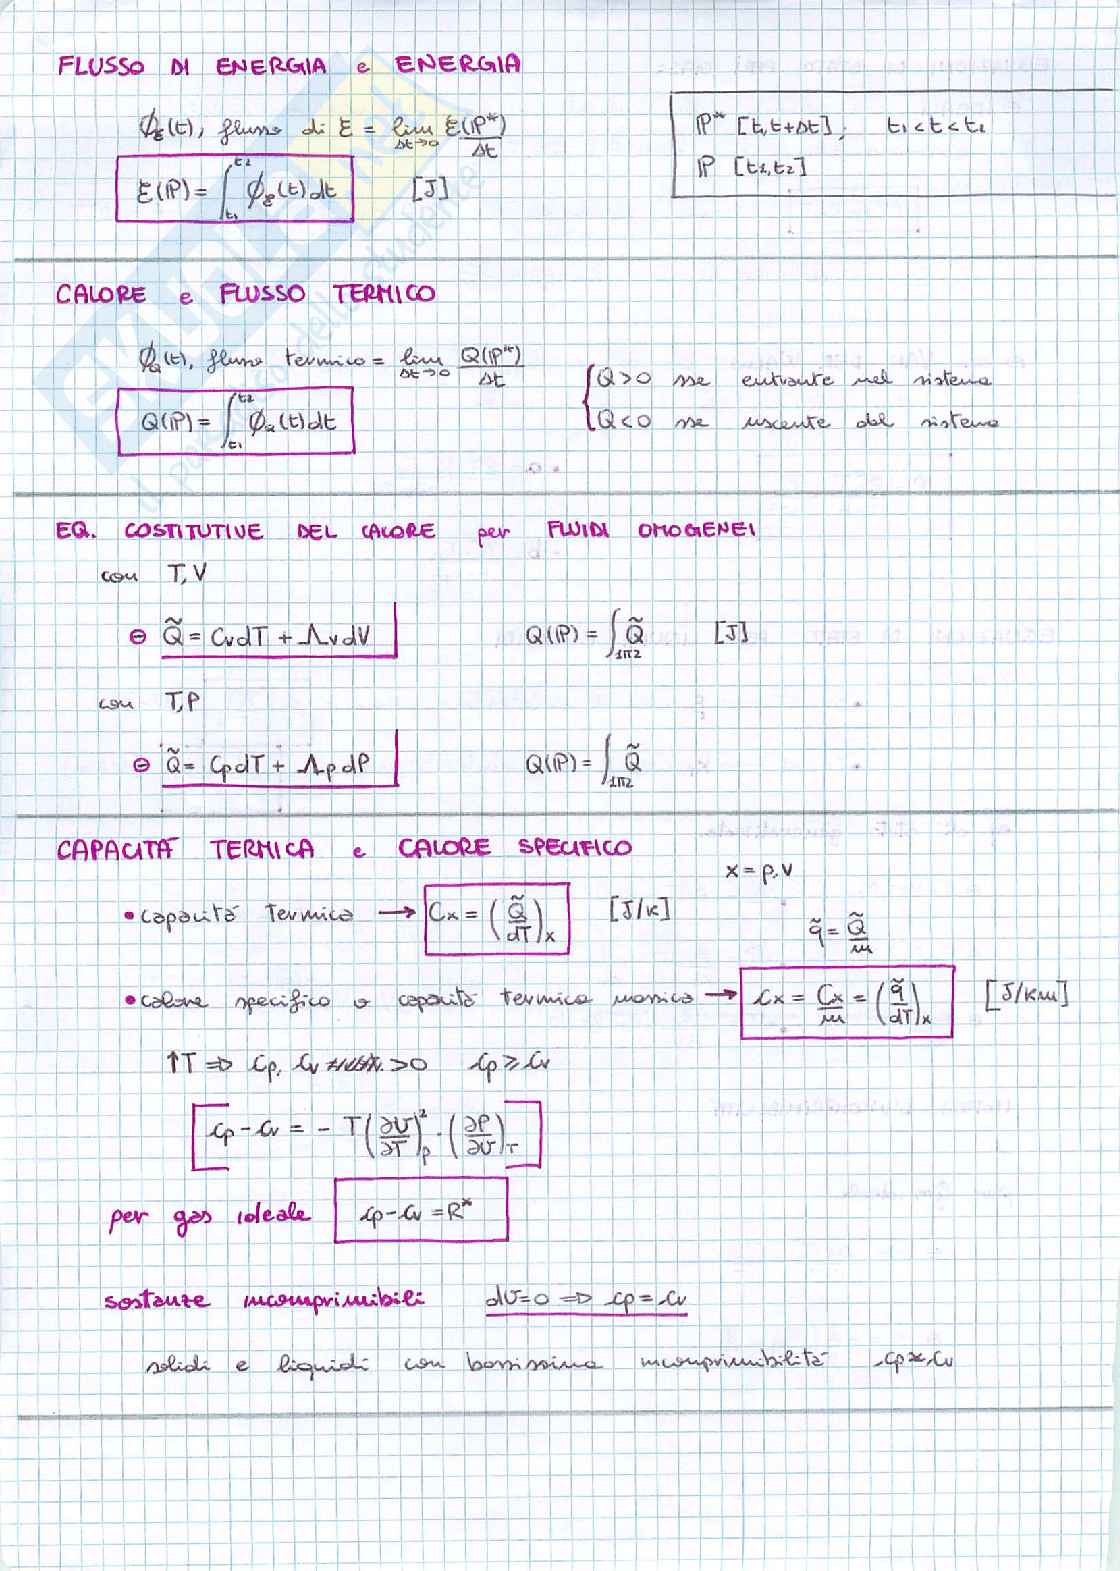 FLUSSO DI ENERGIA e ENERGIA
ϕ_ℰ(t), flusso di ℰ = lim_{Δt→0} ℰ(ℙ*)/Δt
ℙ* [t, t+Δt], t₁<t<t₂
ℰ(ℙ) = ∫_{t₁}^{t₂} ϕ_ℰ(t)dt [J]
ℙ [t₁,t₂]
CALORE e FLUSSO TERMICO
ϕ_Q(t), flusso termico = lim_{Δt→0} Q(ℙ*)/Δt
{ Q>0 sse entrante nel sistema
Q(ℙ) = ∫_{t₁}^{t₂} ϕ_Q(t)dt
Q<0 sse uscente dal sistema
EQ. COSTITUTIVE DEL CALORE per FLUIDI OMOGENEI
con T,V
⊖ Q̃ = CvdT + ΛvdV Q(ℙ) = ∫_{1π2} Q̃ [J]
con T,P
⊖ Q̃ = CpdT + ΛpdP Q(ℙ) = ∫_{1π2} Q̃
CAPACITÀ TERMICA e CALORE SPECIFICO
x = p,v
• capacità termica → Cx = (Q̃/dT)_x [J/K]
q̃ = Q̃/m
• calore specifico o capacità termica massica → cx = Cx/m = (q̃/dT)_x [J/Km]
↑T ⇒ cp, cv >0 cp ≥ cv
cp - cv = - T(∂v/∂T)²_p · (∂P/∂v)_T
per gas ideale cp - cv = R*
sostanze incomprimibili dv=0 ⇒ cp = cv
solidi e liquidi con bassissima incomprimibilità cp≈cv